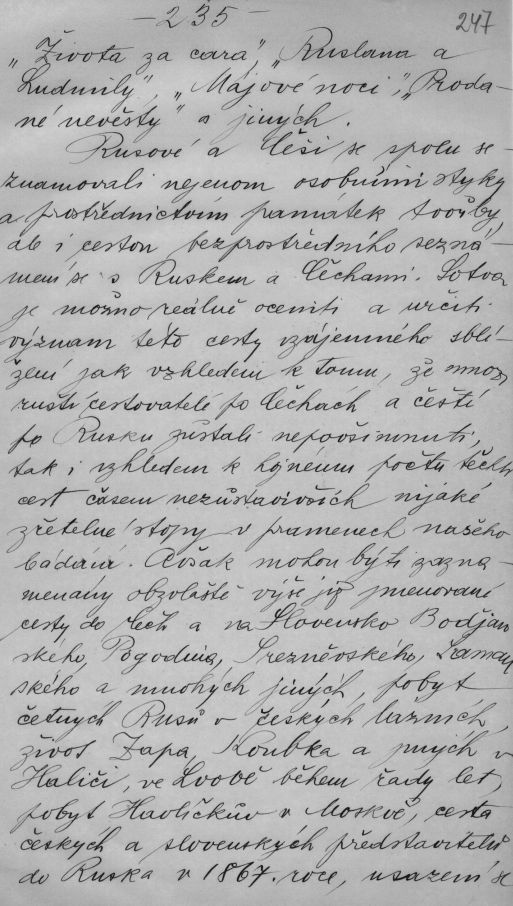 - 235 -
247
„Života za cara", „Ruslana a
Ludmily", „Májové noci", „Proda-
né nevěsty" a jiných.
Rusové a Češi se spolu se-
znamovali nejenom osobními styky
a prostřednictvím památek tvorby,
ale i cestou bezprostředního sezná-
mení se s Ruskem a Čechami. Sotva
je možno reálně oceniti a určiti
význam této cesty vzájemného sblí-
žení jak vzhledem k tomu, že mnozí
ruští cestovatelé po Čechách a čeští
po Rusku zůstali nepovšimnuti,
tak i vzhledem k hojnému počtu těchto
cest časem nezůstavivších nijaké
zřetelné stopy v pramenech našeho
bádání. Avšak mohou býti zazna-
menány obzvláště výše již jmenované
cesty do Čech a na Slovensko Bodjan-
ského, Pogodina, Srezněvského, Laman-
ského a mnohých jiných, pobyt
četných Rusů v českých lázních,
život Zapa, Koubka a jiných v
Haliči, ve Lvově během řady let,
pobyt Havlíčkův v Moskvě, cesta
českých a slovenských představitelů
do Ruska v 1867. roce, usazení se